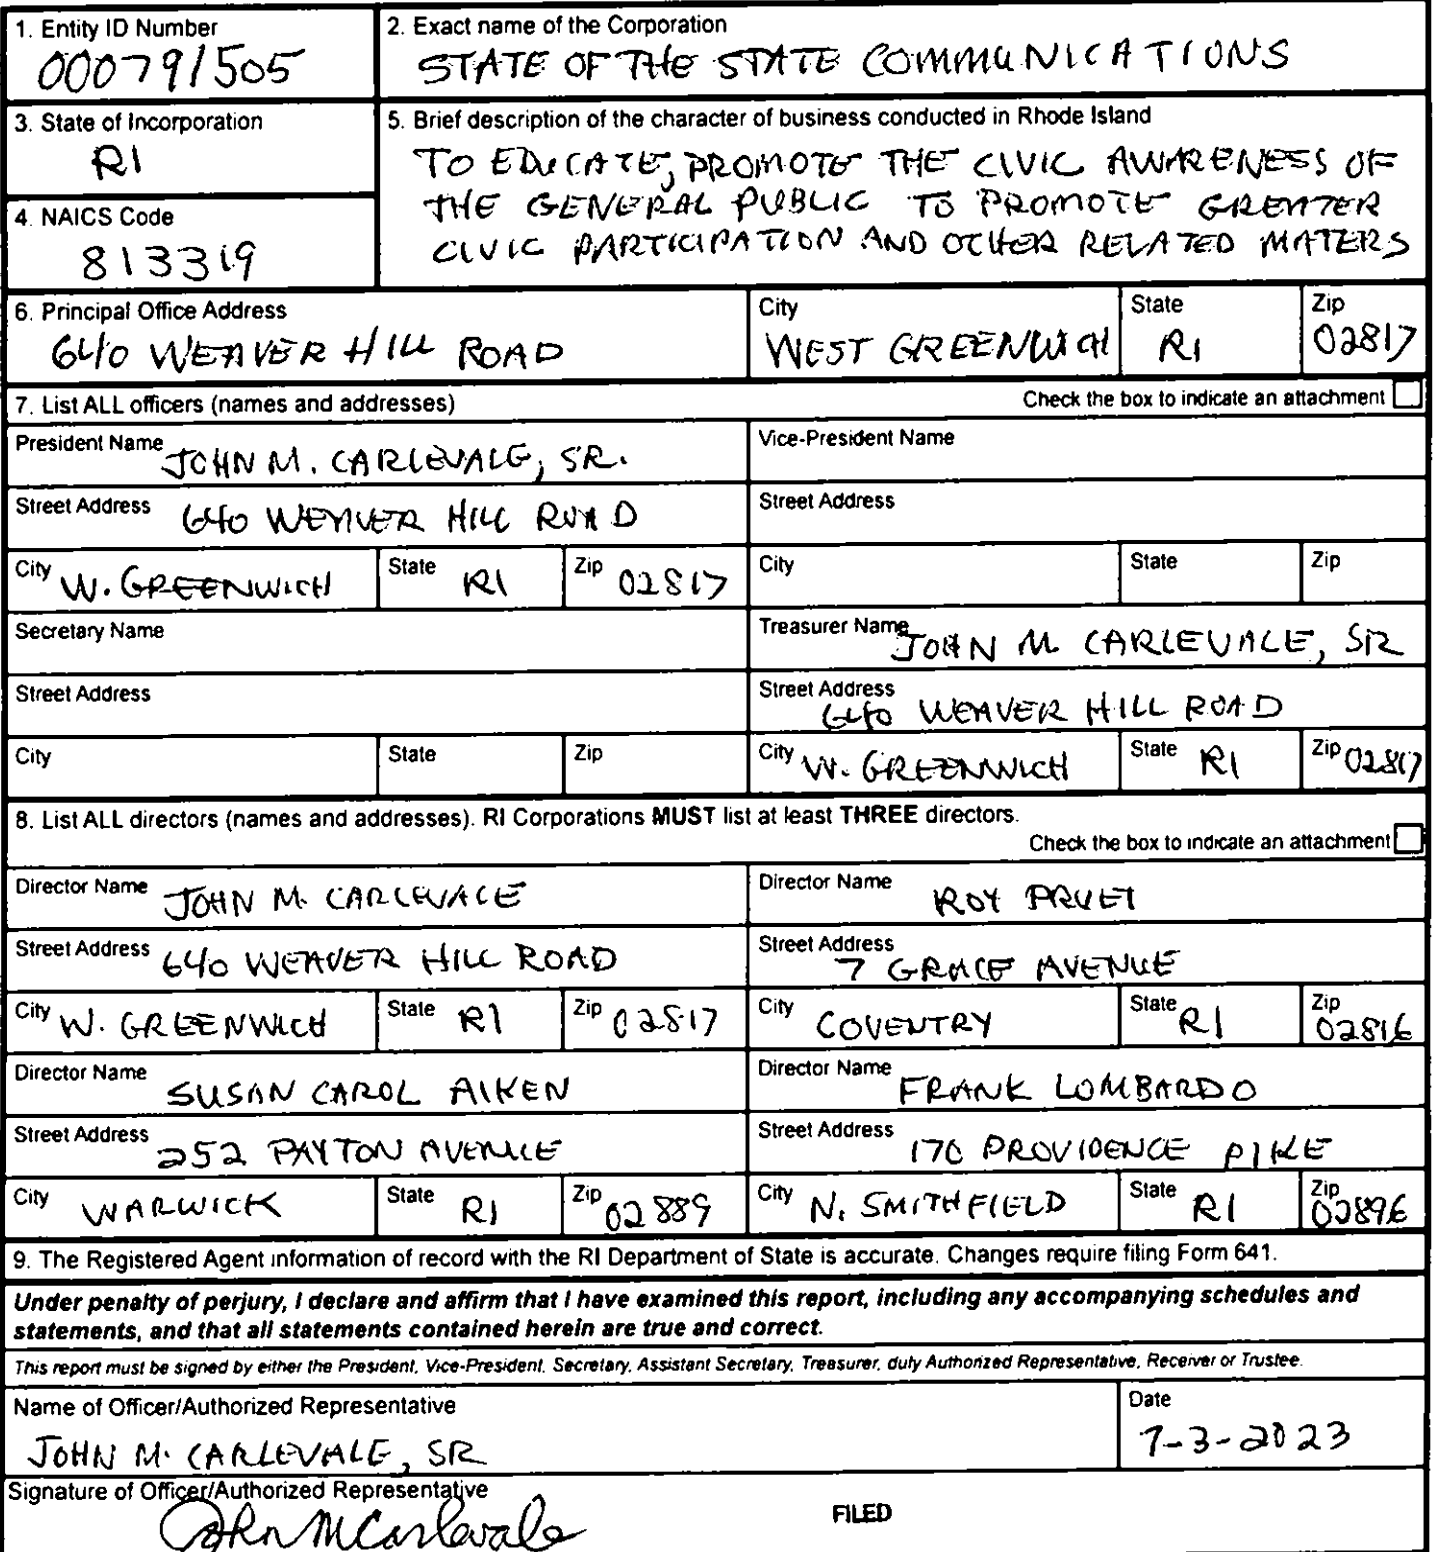 1. Entity ID Number
000791505
2. Exact name of the Corporation
STATE OF THE STATE COMMUNICATIONS
3. State of Incorporation
RI
4. NAICS Code
813319
5. Brief description of the character of business conducted in Rhode Island
TO EDUCATE, PROMOTE THE CIVIC AWARENESS OF
THE GENERAL PUBLIC TO PROMOTE GREATER
CIVIC PARTICIPATION AND OTHER RELATED MATERS
6. Principal Office Address City State Zip
640 WEAVER HILL ROAD WEST GREENWICH RI 02817
7. List ALL officers (names and addresses) Check the box to indicate an attachment
President Name JOHN M. CARLEVALE, SR. Vice-President Name
Street Address 640 WEAVER HILL ROAD Street Address
City W. GREENWICH State RI Zip 02817 City State Zip
Secretary Name Treasurer Name JOHN M CARLEVALE, SR
Street Address Street Address 640 WEAVER HILL ROAD
City State Zip City W. GREENWICH State RI Zip 02817
8. List ALL directors (names and addresses). RI Corporations MUST list at least THREE directors.
Check the box to indicate an attachment
Director Name JOHN M. CARLEVALE Director Name ROY PRUET
Street Address 640 WEAVER HILL ROAD Street Address 7 GRACE AVENUE
City W. GREENWICH State RI Zip 02817 City COVENTRY State RI Zip 02816
Director Name SUSAN CAROL AIKEN Director Name FRANK LOMBARDO
Street Address 252 PAYTON AVENUE Street Address 170 PROVIDENCE PIKE
City WARWICK State RI Zip 02889 City N. SMITHFIELD State RI Zip 02896
9. The Registered Agent information of record with the RI Department of State is accurate. Changes require filing Form 641.
Under penalty of perjury, I declare and affirm that I have examined this report, including any accompanying schedules and
statements, and that all statements contained herein are true and correct.
This report must be signed by either the President, Vice-President, Secretary, Assistant Secretary, Treasurer, duly Authorized Representative, Receiver or Trustee.
Name of Officer/Authorized Representative Date
JOHN M. CARLEVALE, SR 7-3-2023
Signature of Officer/Authorized Representative
John M Carlevale
FILED